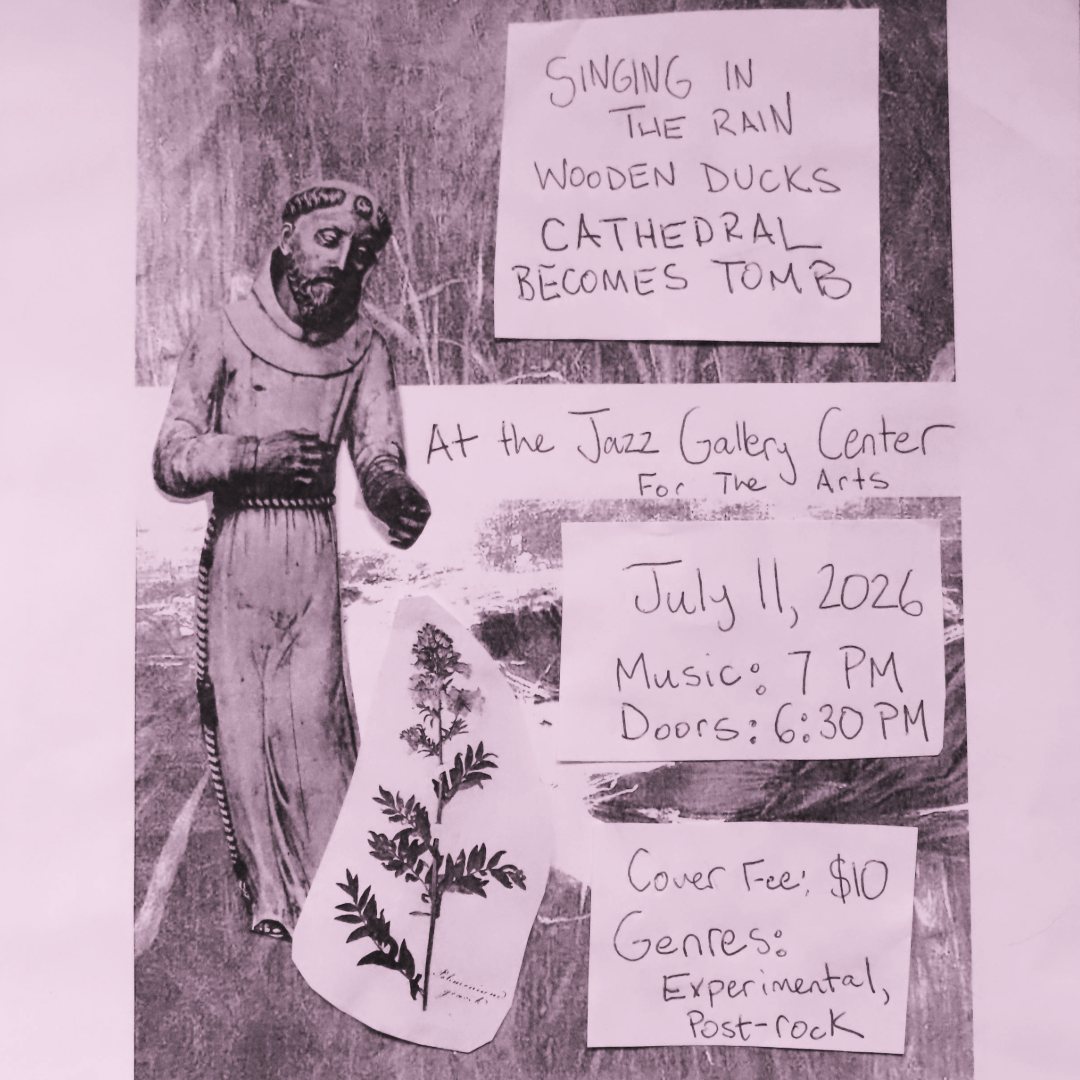 SINGING IN
THE RAIN
WOODEN DUCKS
CATHEDRAL
BECOMES TOMB
At the Jazz Gallery Center
For The Arts
July 11, 2026
Music: 7 PM
Doors: 6:30 PM
Cover Fee: $10
Genres:
Experimental,
Post-rock